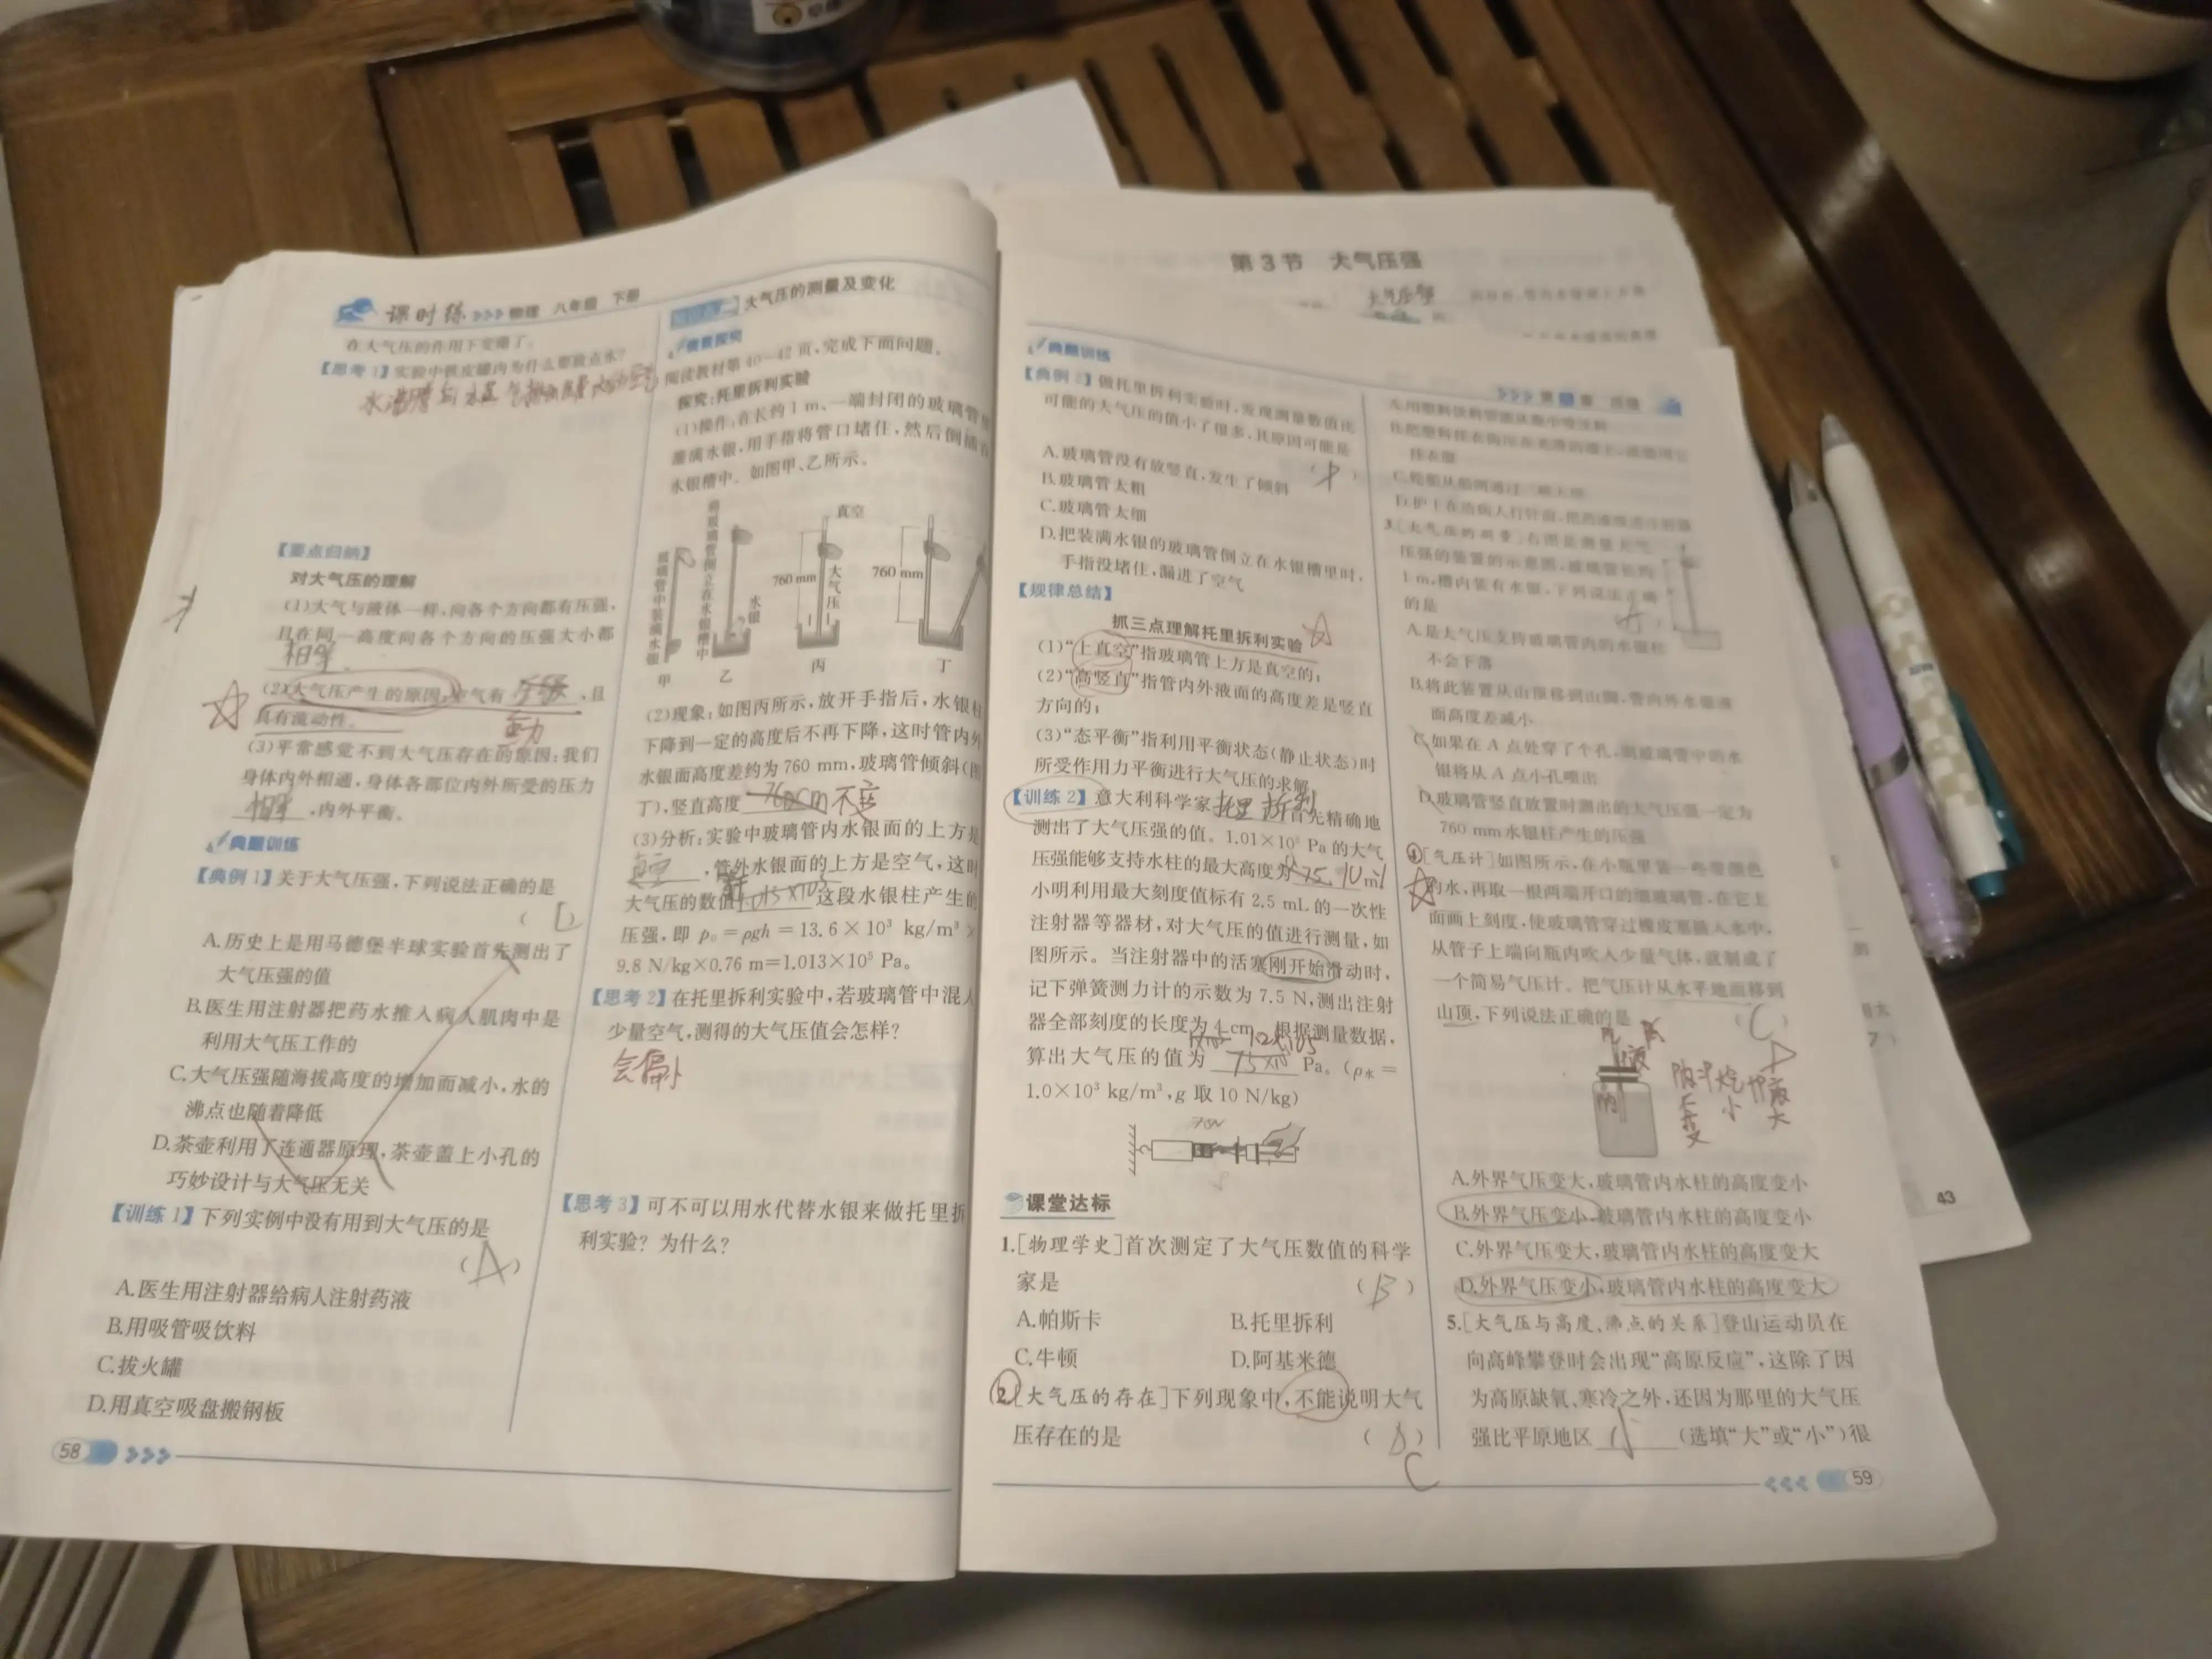 课时练 物理 八年级 下册
在大气压的作用下变瘪了。
【思考1】实验中铁皮罐内为什么要放点水?
【要点归纳】
对大气压的理解
(1)大气与液体一样,向各个方向都有压强,
且在同一高度向各个方向的压强大小都
相等
(2)大气压产生的原因:空气有 ,且
具有流动性。
重力
(3)平常感觉不到大气压存在的原因:我们
身体内外相通,身体各部位内外所受的压力
相等,内外平衡。
典题训练
【典例1】关于大气压强,下列说法正确的是
A.历史上是用马德堡半球实验首先测出了
大气压强的值
B.医生用注射器把药水推入病人肌肉中是
利用大气压工作的
C.大气压强随海拔高度的增加而减小,水的
沸点也随着降低
D.茶壶利用了连通器原理,茶壶盖上小孔的
巧妙设计与大气压无关
【训练1】下列实例中没有用到大气压的是
(A)
A.医生用注射器给病人注射药液
B.用吸管吸饮料
C.拔火罐
D.用真空吸盘搬钢板
58
大气压的测量及变化
情景探究
阅读教材第40-42页,完成下面问题。
探究:托里拆利实验
(1)操作:在长约1 m、一端封闭的玻璃管
灌满水银,用手指将管口堵住,然后倒插在
水银槽中。如图甲、乙所示。
玻璃管中装满水银
将玻璃管倒立在水银槽中
水银
真空
760 mm
大气压
760 mm
甲
乙
丙
丁
(2)现象:如图丙所示,放开手指后,水银柱
下降到一定的高度后不再下降,这时管内外
水银面高度差约为760 mm,玻璃管倾斜(图
丁),竖直高度 不变
(3)分析:实验中玻璃管内水银面的上方是
真空,管外水银面的上方是空气,这时
大气压的数值 这段水银柱产生的
压强,即 p₀=ρgh=13.6×10³ kg/m³×
9.8 N/kg×0.76 m=1.013×10⁵ Pa。
【思考2】在托里拆利实验中,若玻璃管中混入
少量空气,测得的大气压值会怎样?
会偏小
【思考3】可不可以用水代替水银来做托里拆
利实验?为什么?
第3节 大气压强
典题训练
【典例2】做托里拆利实验时,发现测量数值比
可能的大气压的值小了很多,其原因可能是
A.玻璃管没有放竖直,发生了倾斜
B.玻璃管太粗
C.玻璃管太细
D.把装满水银的玻璃管倒立在水银槽里时,
手指没堵住,漏进了空气
【规律总结】
抓三点理解托里拆利实验
(1)“上真空”指玻璃管上方是真空的;
(2)“高竖直”指管内外液面的高度差是竖直
方向的;
(3)“态平衡”指利用平衡状态(静止状态)时
所受作用力平衡进行大气压的求解。
【训练2】意大利科学家托里拆利首先精确地
测出了大气压强的值。1.01×10⁵ Pa的大气
压强能够支持水柱的最大高度为 10.1 m。
小明利用最大刻度值标有2.5 mL的一次性
注射器等器材,对大气压的值进行测量,如
图所示。当注射器中的活塞刚开始滑动时,
记下弹簧测力计的示数为7.5 N,测出注射
器全部刻度的长度为4 cm。根据测量数据,
算出大气压的值为 Pa。(ρ水=
1.0×10³ kg/m³,g取10 N/kg)
课堂达标
1.[物理学史]首次测定了大气压数值的科学
家是 (B)
A.帕斯卡 B.托里拆利
C.牛顿 D.阿基米德
2.[大气压的存在]下列现象中,不能说明大气
压存在的是
C
A.用塑料饮料管能从瓶中吸饮料
B.把塑料挂衣钩压在光滑的墙上,就能用它
挂衣服
C.轮船从船闸通过三峡大坝
3.[大气压的测量]右图是测量大气
压强的装置的示意图,玻璃管长约
1 m,槽内装有水银。下列说法正确
的是
A.是大气压支持玻璃管内的水银柱
不会下落
B.将此装置从山顶移到山脚,管内外水银液
面高度差减小
C.如果在A点处穿了个孔,则玻璃管中的水
银将从A点小孔喷出
D.玻璃管竖直放置时测出的大气压强一定为
760 mm水银柱产生的压强
4.[气压计]如图所示,在小瓶里装一些带颜色
的水,再取一根两端开口的细玻璃管,在它上
面画上刻度,使玻璃管穿过橡皮塞插入水中,
从管子上端向瓶内吹入少量气体,就制成了
一个简易气压计。把气压计从水平地面移到
山顶,下列说法正确的是 (C)
D
A.外界气压变大,玻璃管内水柱的高度变小
B.外界气压变小,玻璃管内水柱的高度变小
C.外界气压变大,玻璃管内水柱的高度变大
D.外界气压变小,玻璃管内水柱的高度变大
5.[大气压与高度、沸点的关系]登山运动员在
向高峰攀登时会出现“高原反应”,这除了因
为高原缺氧、寒冷之外,还因为那里的大气压
强比平原地区 小 (选填“大”或“小”)很
59
43